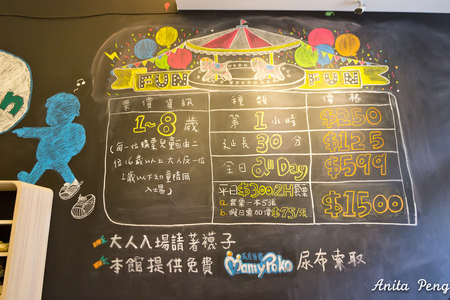 FUN FUN
票價資訊 種類 價格
1~8歲
(每一位購票兒童可由二
位16歲以上大人及一位
1歲以下幼童陪同
入場)
第1小時 $250
延長30分 $125
全日 all Day $599
平日$300/2H套票 $1500
a. 套票一本5張
b. 假日需加價$75/張
大人入場請著襪子
本館提供免費 MamyPoko 尿布索取
Anita Peng